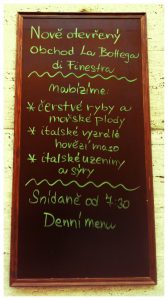 Nově otevřený
Obchod La Bottega
di Finestra
nabízíme:
* čerstvé ryby a
mořské plody
* italské vyzrálé
hovězí maso
* italské uzeniny
a sýry
Snídaně od 7:30
Denní menu